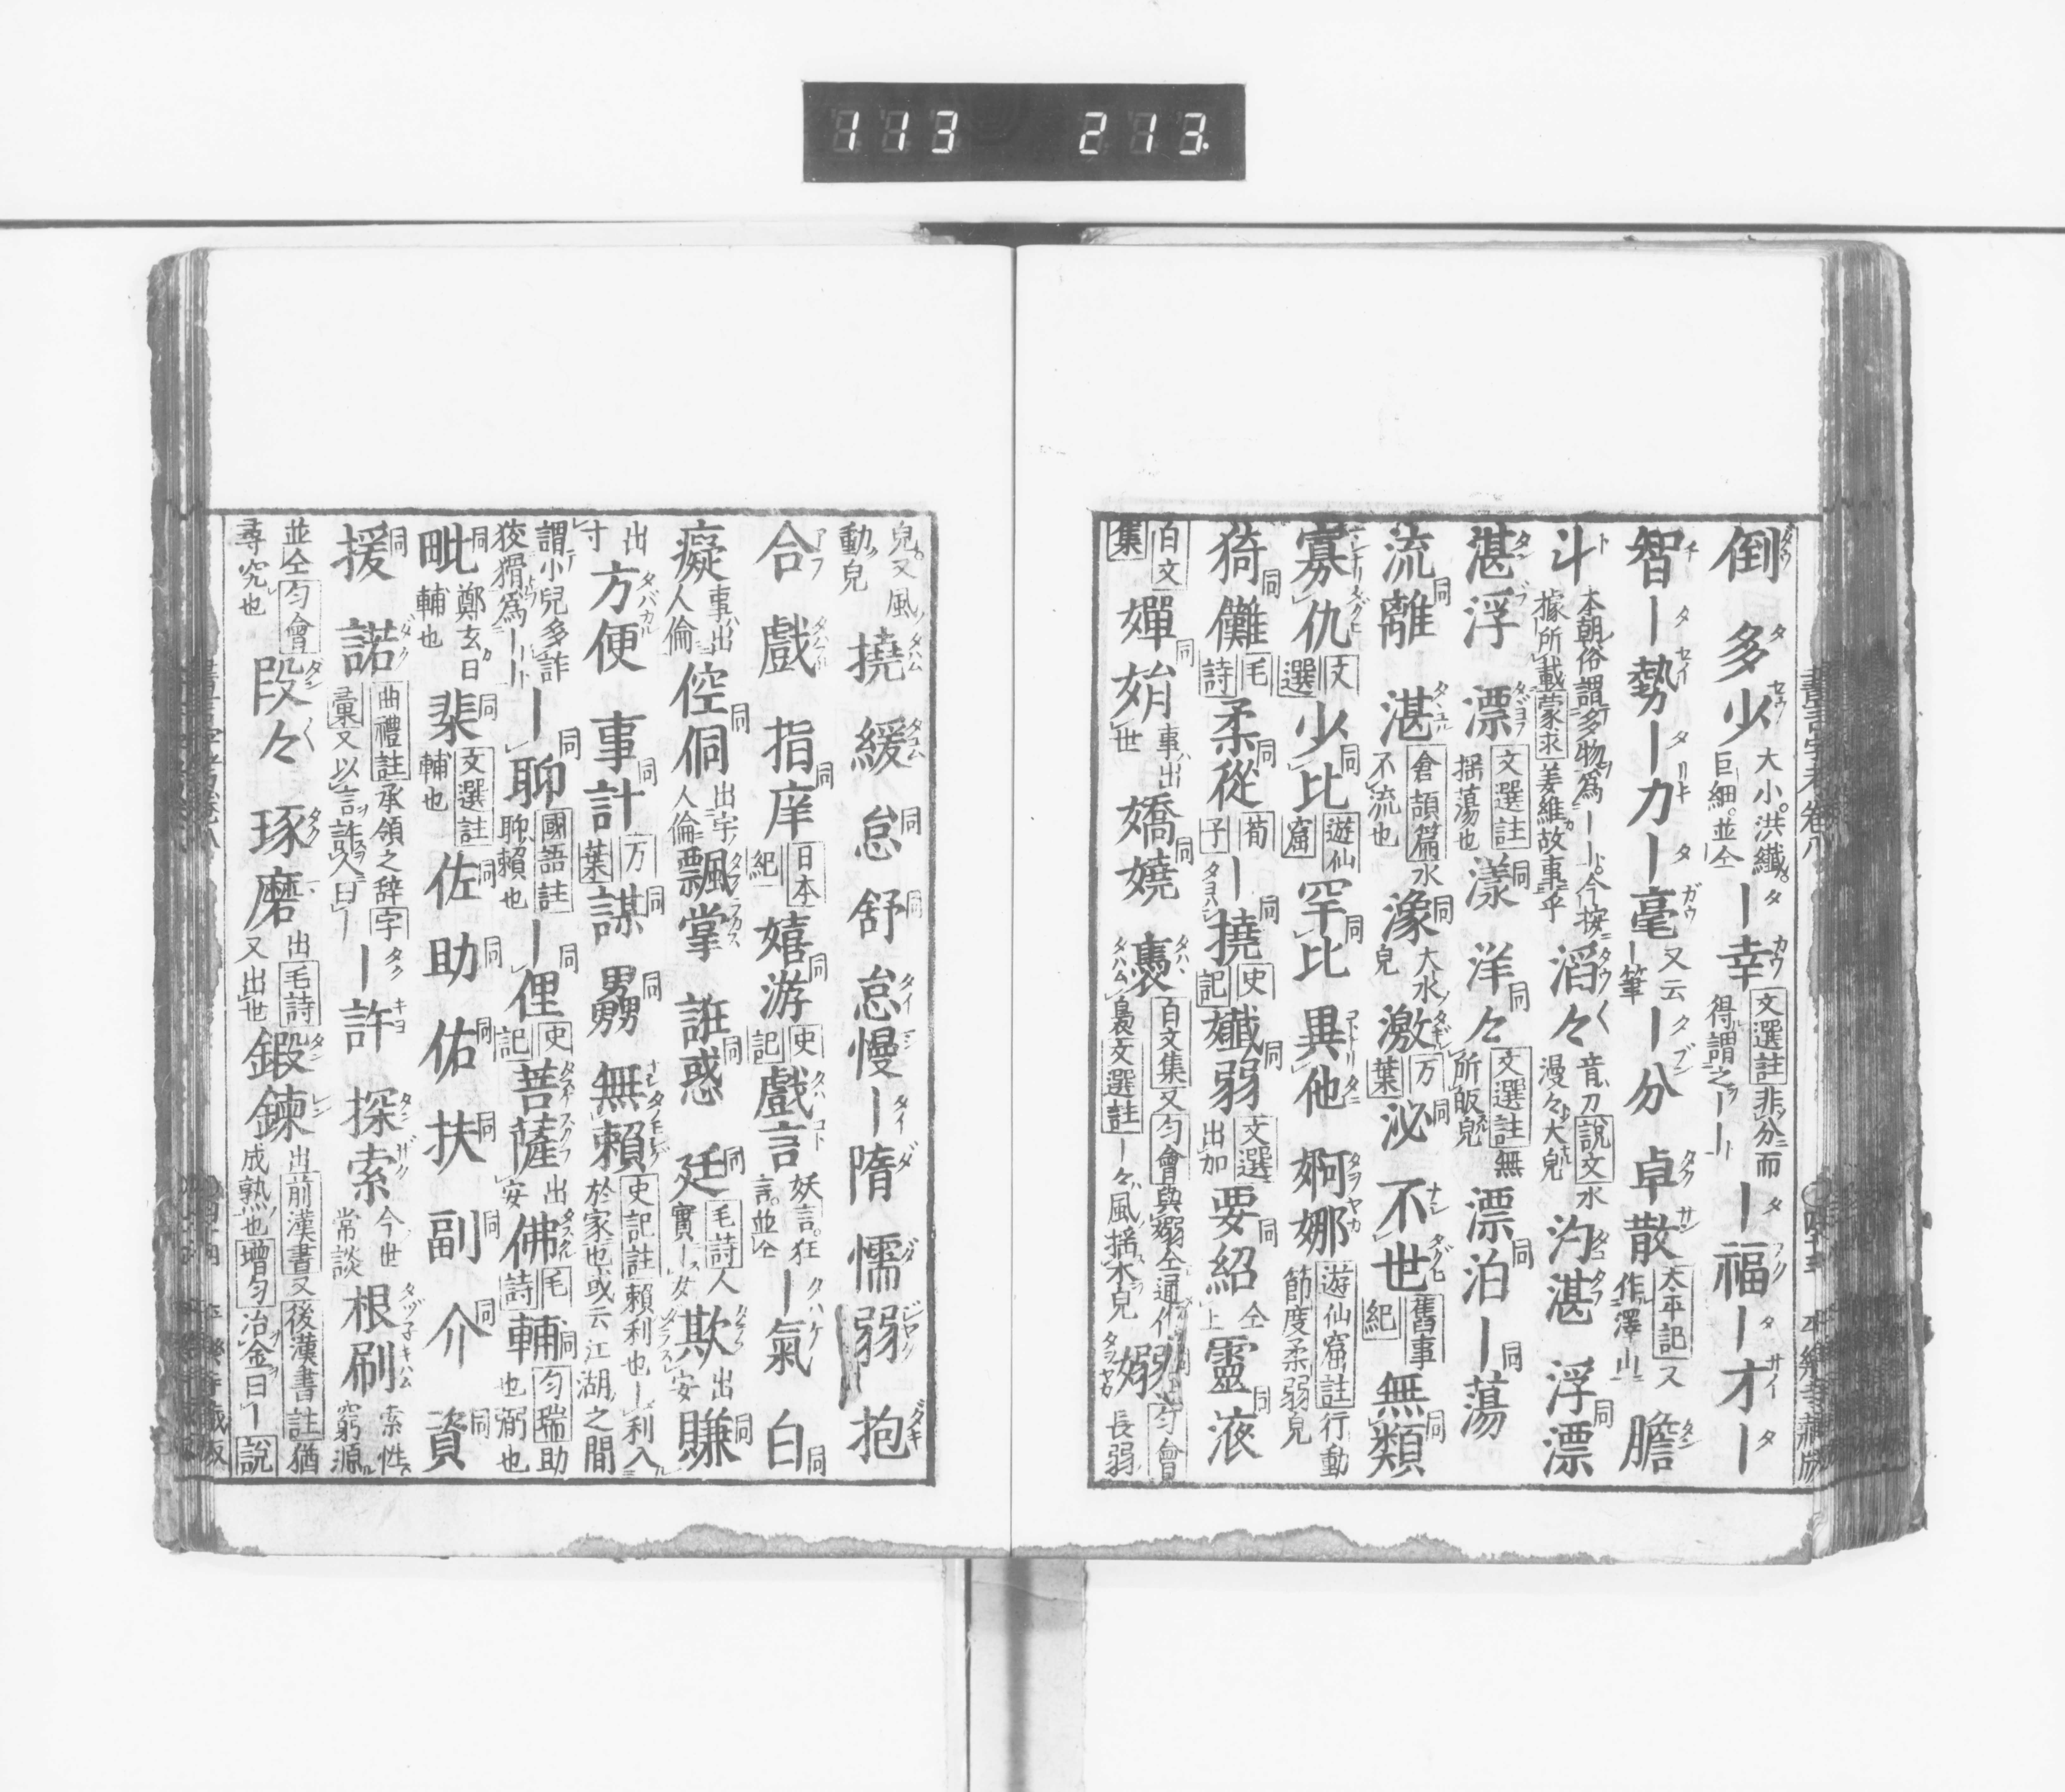 113 213.
倒 多少 大小。洪纖。巨細。並仝 ー幸 文選註非分而得謂之ーー ー福ー才ー
智ー勢ー力ー毫 又云ー筆 ー分 卓散 太平記又作澤山 膽
斗 本朝俗謂多物爲ーー今按據所載蒙求姜維故事乎 滔々 音刀說文水漫々大皃 湛 浮漂
湛浮 漂 文選註揺蕩也 漾 洋々 文選註無所皈皃 漂泊ー蕩
流離 湛 倉頡篇水不流也 潒 大水皃 激 万葉 泌 不世 舊事紀 無類
寡仇 文選 少比 遊仙窟 罕比 異他 婀娜 遊仙窟註行動節度柔弱皃
猗儺 毛詩 柔從 荀子 ー撓 史記 孅弱 文選出加 要紹 仝上 靈液
白文集 嬋娟 事出世 嬌嬈 褭 白文集又匀會與嫋仝通作 褭文選註ー々風揺木皃 嫋 匀會長弱
皃。又風動皃 撓 緩 怠 舒 怠慢ー隋 懦弱 抱
合 戲 指庠 日本紀 嬉游 史記 戲言 妖言。狂言。並仝 ー氣 白
癡 事出人倫 倥侗 出宇人倫 飄掌 誑惑 廷 毛詩人實ー女 欺 出安 賺
出寸 方便 事計 万葉 謀 嬲 無賴 史記註賴利也ー利入於家也或云江湖之間
謂小兒多詐狡猾爲ーー ー聊 國語註聊賴也 ー俚 史記 菩薩 出安 佛 毛詩 輔 匀瑞助也弼也
毗 鄭玄曰輔也 棐 文選註輔也 佐 助 佑 扶 副 介 資
援 諾 曲禮註承領之辞字彙又以言許人曰ー ー許 探索 今世常談 根刷 索性窮源
並仝匀會尋究也 段々 琢磨 出毛詩又出世 鍛鍊 出前漢書又後漢書註猶成熟也增匀冶金曰ー說